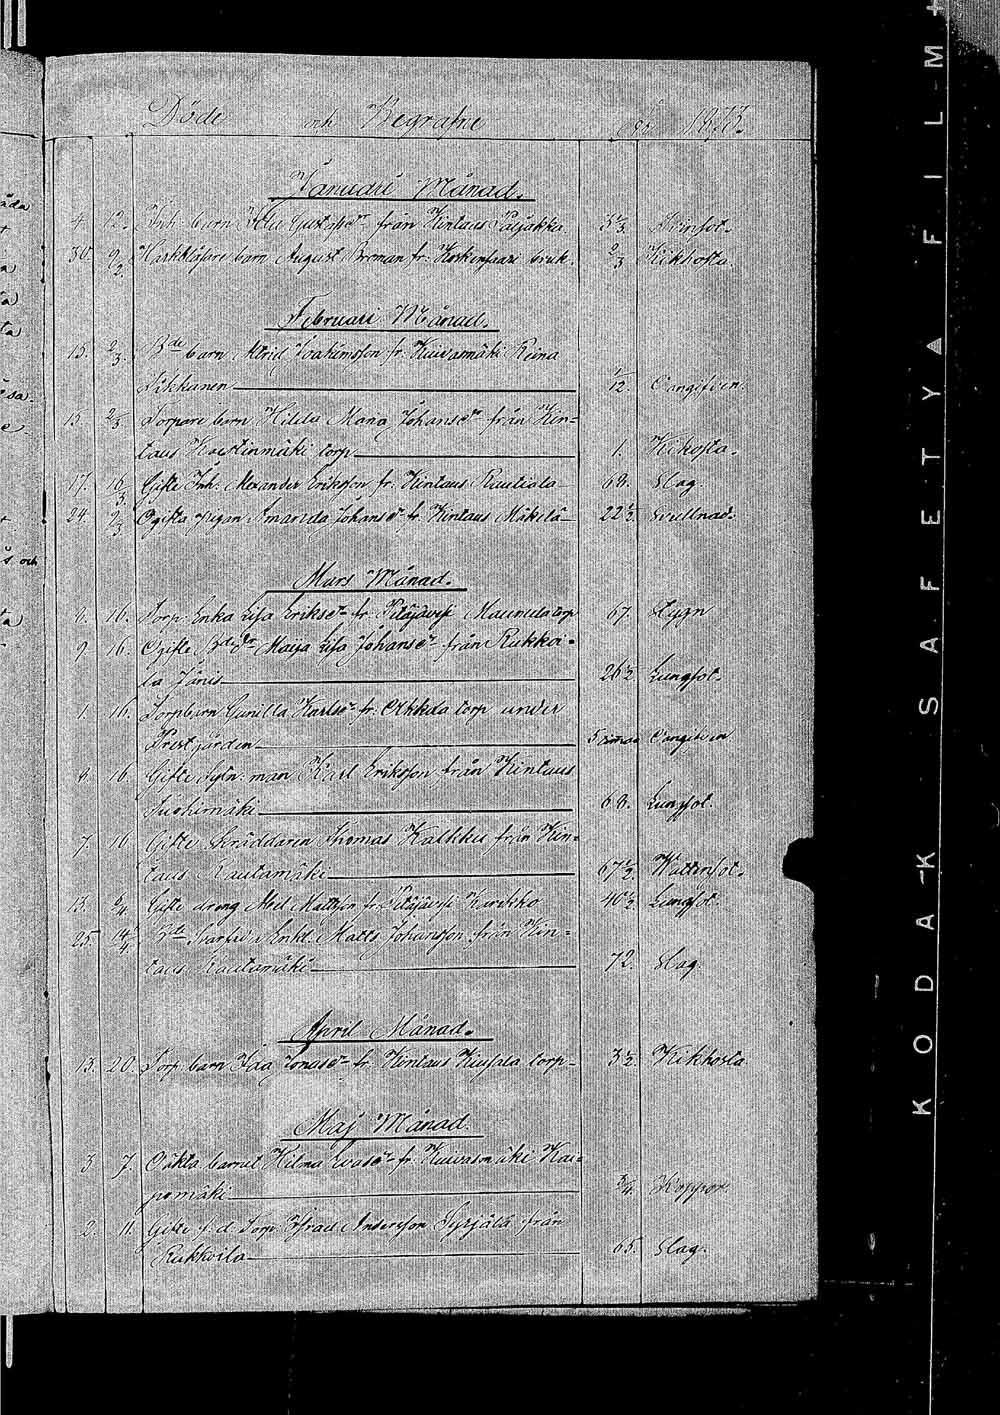 Döde och Begrafne år 1873.
Januari Månad.
4 12. Inh. barn Gustafsdr från Kintaus Paljakka. 3 1/3. Strinsot.
30. 9/2. barn August Broman fr. Koskensaari bruk. 2/3 Kikhosta.
Februari Månad.
15. 2/3. Bde barn Joakimsson fr. Kuivasmäki Reina
Pikkanen 1/12. Oangifven.
15 2/3. Torpare barn Hilda Maria Johansdr från Kin-
taus torp 1. Kikosta.
17. 16/3. Gifte Inh. Alexander Eriksson fr. Kintaus Rautiala 68. Slag.
24. 2/3 Ogifta pigan Amanda Johansdr fr. Kintaus Mäkelä 22 1/2. Svullnad.
Mars Månad.
8. 16. Torp. Enka Lisa Eriksdr fr. Pitäjävesi Maunula torp 67. Stygn
9 16. Ogifte Bde dr Maija Lisa Johansdr från Rukkoi-
la Jänis 26 1/2. Lungsot.
1. 16. Torp barn Gunilla Karlsdr fr. Olkkola torp under
Prestgården 5 timar Oangifven
8. 16. Gifte Sytn. man Karl Eriksson från Kintaus
Suohimäki 68. Lungsot.
7. 16 Gifte Skräddaren Thomas Kalkku från Kin-
taus Rautamäki 67 1/2. Wattensot.
13. 6/4. Gifte dreng Abel Mattsson fr. Pitäjävesi Kirikko 40 1/2. Lungsot.
25 14/4. Bde Enkl. Matts Johansson från Kin-
taus Rautamäki 72. Slag.
April Månad.
13. 20. Torp. barn Ida Jonasdr fr. Kintaus torp 3 1/2. Kikhosta
Maj Månad.
3 7. Oäkta barnet Hilma Evasdr fr. Kuivasmäki Kai-
pomäki 3/4. Koppor.
2. 11. Gifte f.d. Torp. Israel Andersson Syrjälä från
Rukkoila 65. Slag.
KODAK SAFETY FILM